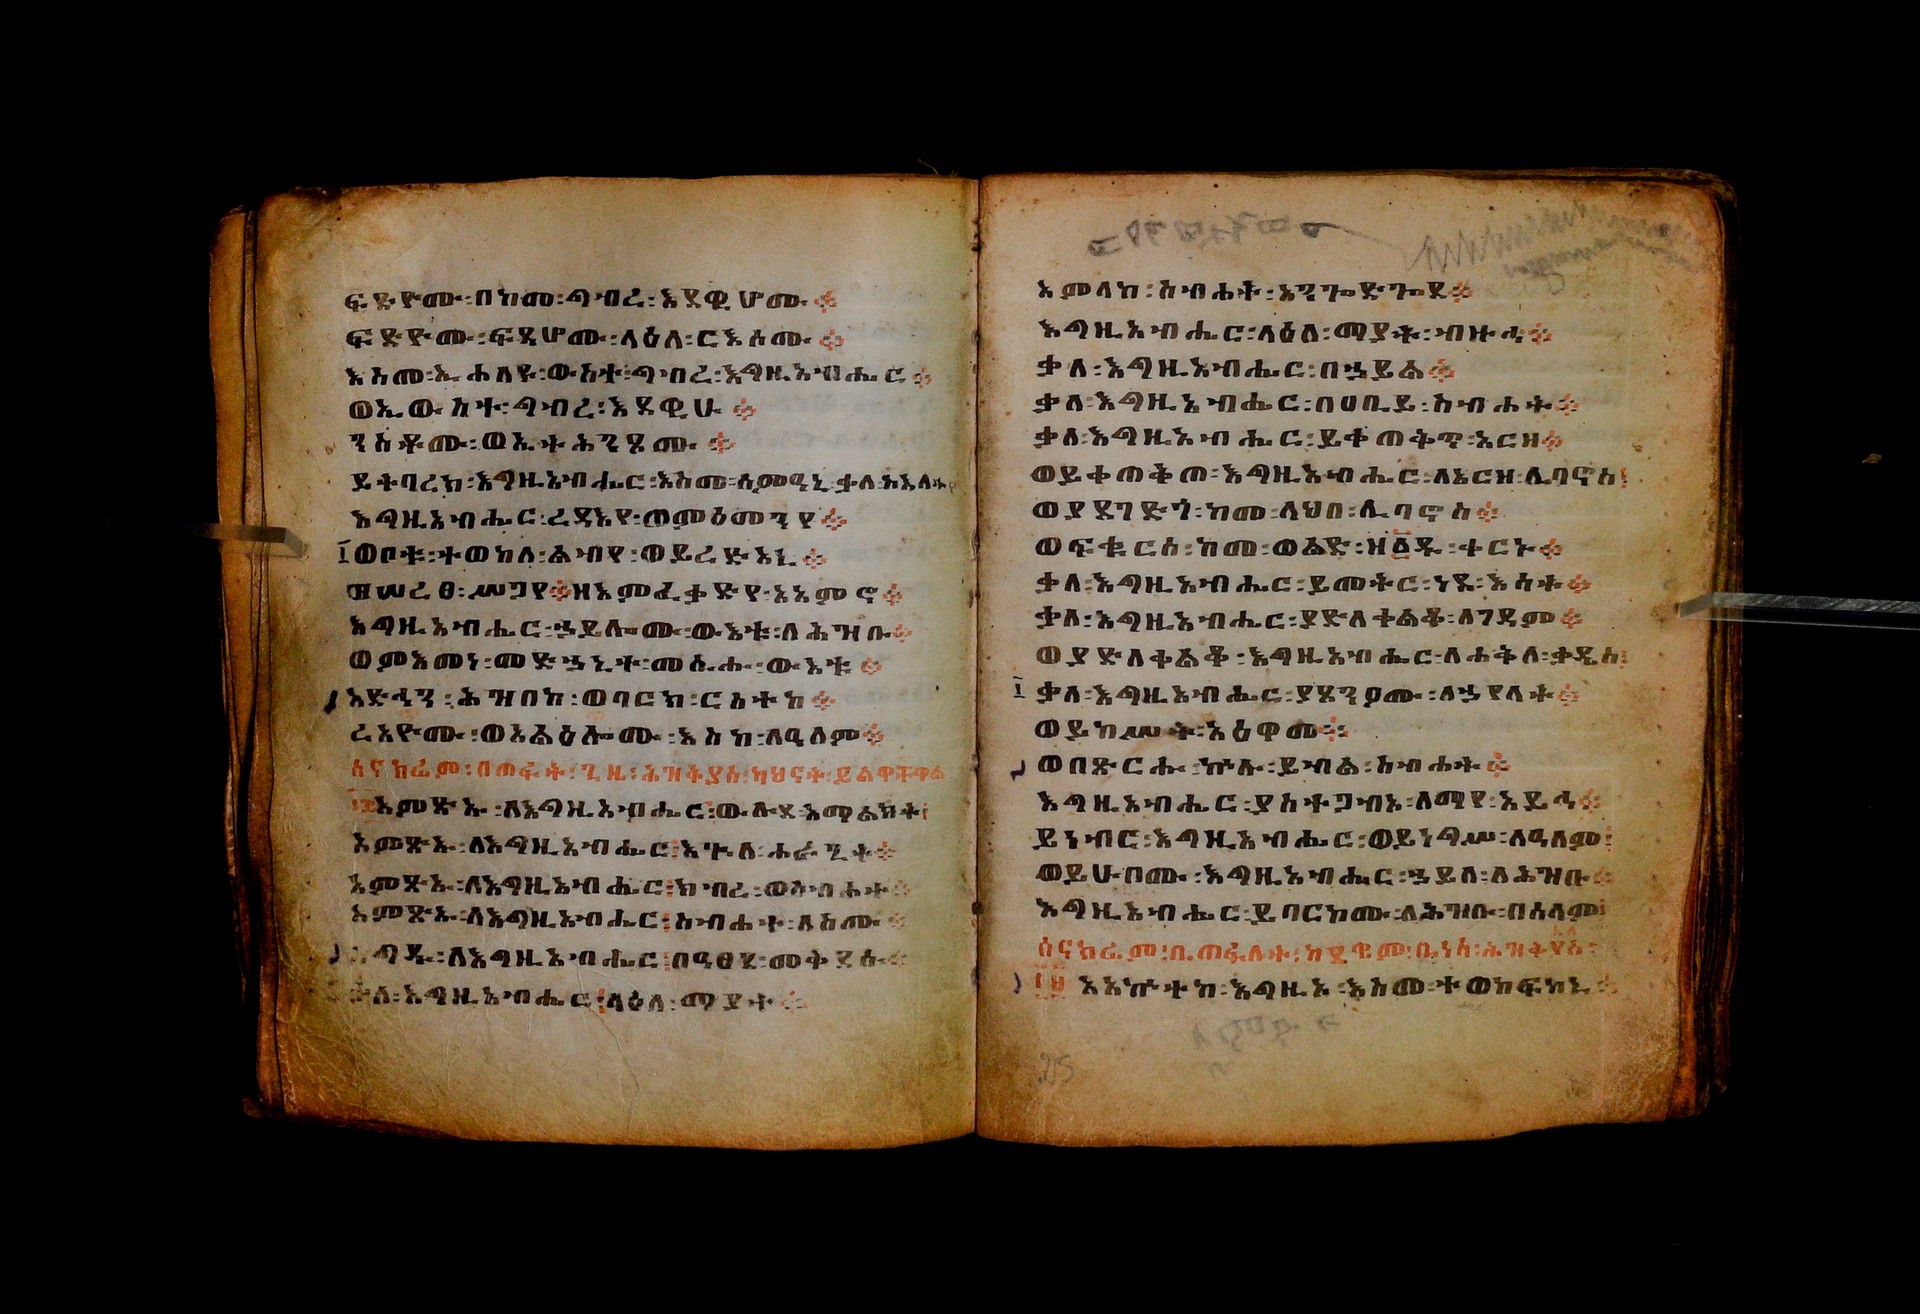 ፍድዮሙ፡በከመ፡ግብረ፡እደዊሆሙ።
ፍድዮሙ፡ፍዳሆሙ፡ላዕለ፡ርእሶሙ።
እስመ፡ኢሐለዩ፡ውስተ፡ግብረ፡እግዚአብሔር።
ወኢውስተ፡ግብረ፡እደዊሁ።
ንስቶሙ፡ወኢትሕንጾሙ።
ይትባረክ፡እግዚአብሔር፡እስመ፡ሰምዓኒ፡ቃለ፡
እግዚአብሔር፡ረዳእየ፡ወምዕመንየ።
፲ወቦቱ፡ተወከለ፡ልብየ፡ወይረድአኒ።
ወሠረፀ፡ሥጋየ።ዘእምፈቃድየ፡አአምኖ።
እግዚአብሔር፡ኃይሎሙ፡ውእቱ፡ለሕዝቡ።
ወምእመነ፡መድኃኒተ፡መሲሑ፡ውእቱ።
አድኅን፡ሕዝበከ፡ወባርክ፡ርስተከ።
ረአዮሙ፡ወአልዕሎሙ፡እስከ፡ለዓለም።
አምጽኡ፡ለእግዚአብሔር፡ውሉደ፡አማልክት።
አምጽኡ፡ለእግዚአብሔር፡እጕለ፡ሐራጊት።
አምጽኡ፡ለእግዚአብሔር፡ክብረ፡ወስብሐተ።
አምጽኡ፡ለእግዚአብሔር፡ስብሐተ፡ለስሙ።
ስግዱ፡ለእግዚአብሔር፡በዓፀደ፡መቅደሱ።
ቃለ፡እግዚአብሔር፡ላዕለ፡ማያት።
አምላክ፡ስብሐት፡አንጐድጐደ።
እግዚአብሔር፡ላዕለ፡ማያት፡ብዙኅ።
ቃለ፡እግዚአብሔር፡በኃይል።
ቃለ፡እግዚአብሔር፡በዐቢይ፡ስብሐት።
ቃለ፡እግዚአብሔር፡ይቀጠቅጥ፡አርዘ።
ወይቀጠቅጠ፡እግዚአብሔር፡ለአርዘ፡ሊባኖስ፡
ወያደገድጎ፡ከመ፡ላህበ፡ሊባኖስ።
ወፍቁርሰ፡ከመ፡ወልድ፡ዘ፩ዱ፡ቀርኑ።
ቃለ፡እግዚአብሔር፡ይመትር፡ነደ፡እሳት።
ቃለ፡እግዚአብሔር፡ያድለቀልቆ፡ለገዳም።
ወያድለቀልቆ፡እግዚአብሔር፡ለሐቅለ፡ቃዴስ፡
፲ ቃለ፡እግዚአብሔር፡ያጸንዖሙ፡ለኃየላት።
ወይከሥት፡አዕዋመ።
ወበጽርሑ፡ኵሉ፡ይብል፡ስብሐት።
እግዚአብሔር፡ያስተጋብእ፡ለማየ፡አይኅ።
ይነብር፡እግዚአብሔር፡ወይነግሥ፡ለዓለም፡
ወይሁቦሙ፡እግዚአብሔር፡ኃይለ፡ለሕዝቡ።
እግዚአብሔር፡ይባርኮሙ፡ለሕዝቡ፡በሰላም፡
፳፱ አአኵተከ፡እግዚኦ፡እስመ፡ተወከፍከኒ።
25